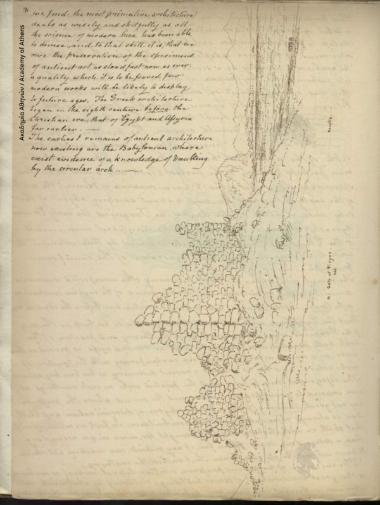 we find, the most primitive architecture
deals as wisely and skilfully as all
the science of modern time has been able
to devise, and to that skill it is, that we
owe the preservation of the specimens
of antient art as stand fast now as ever:
a quality which it is to be feared few
modern works will be likely to display
to future ages. The Greek architecture
began in the eighth century before the
Christian era, that of Egypt and Assyria
far earlier. —
The earliest remains of antient architecture
now existing are the Babylonian, where
exist evidence of a knowledge of vaulting
by the circular arch. —
Ακαδημία Αθηνών / Academy of Athens